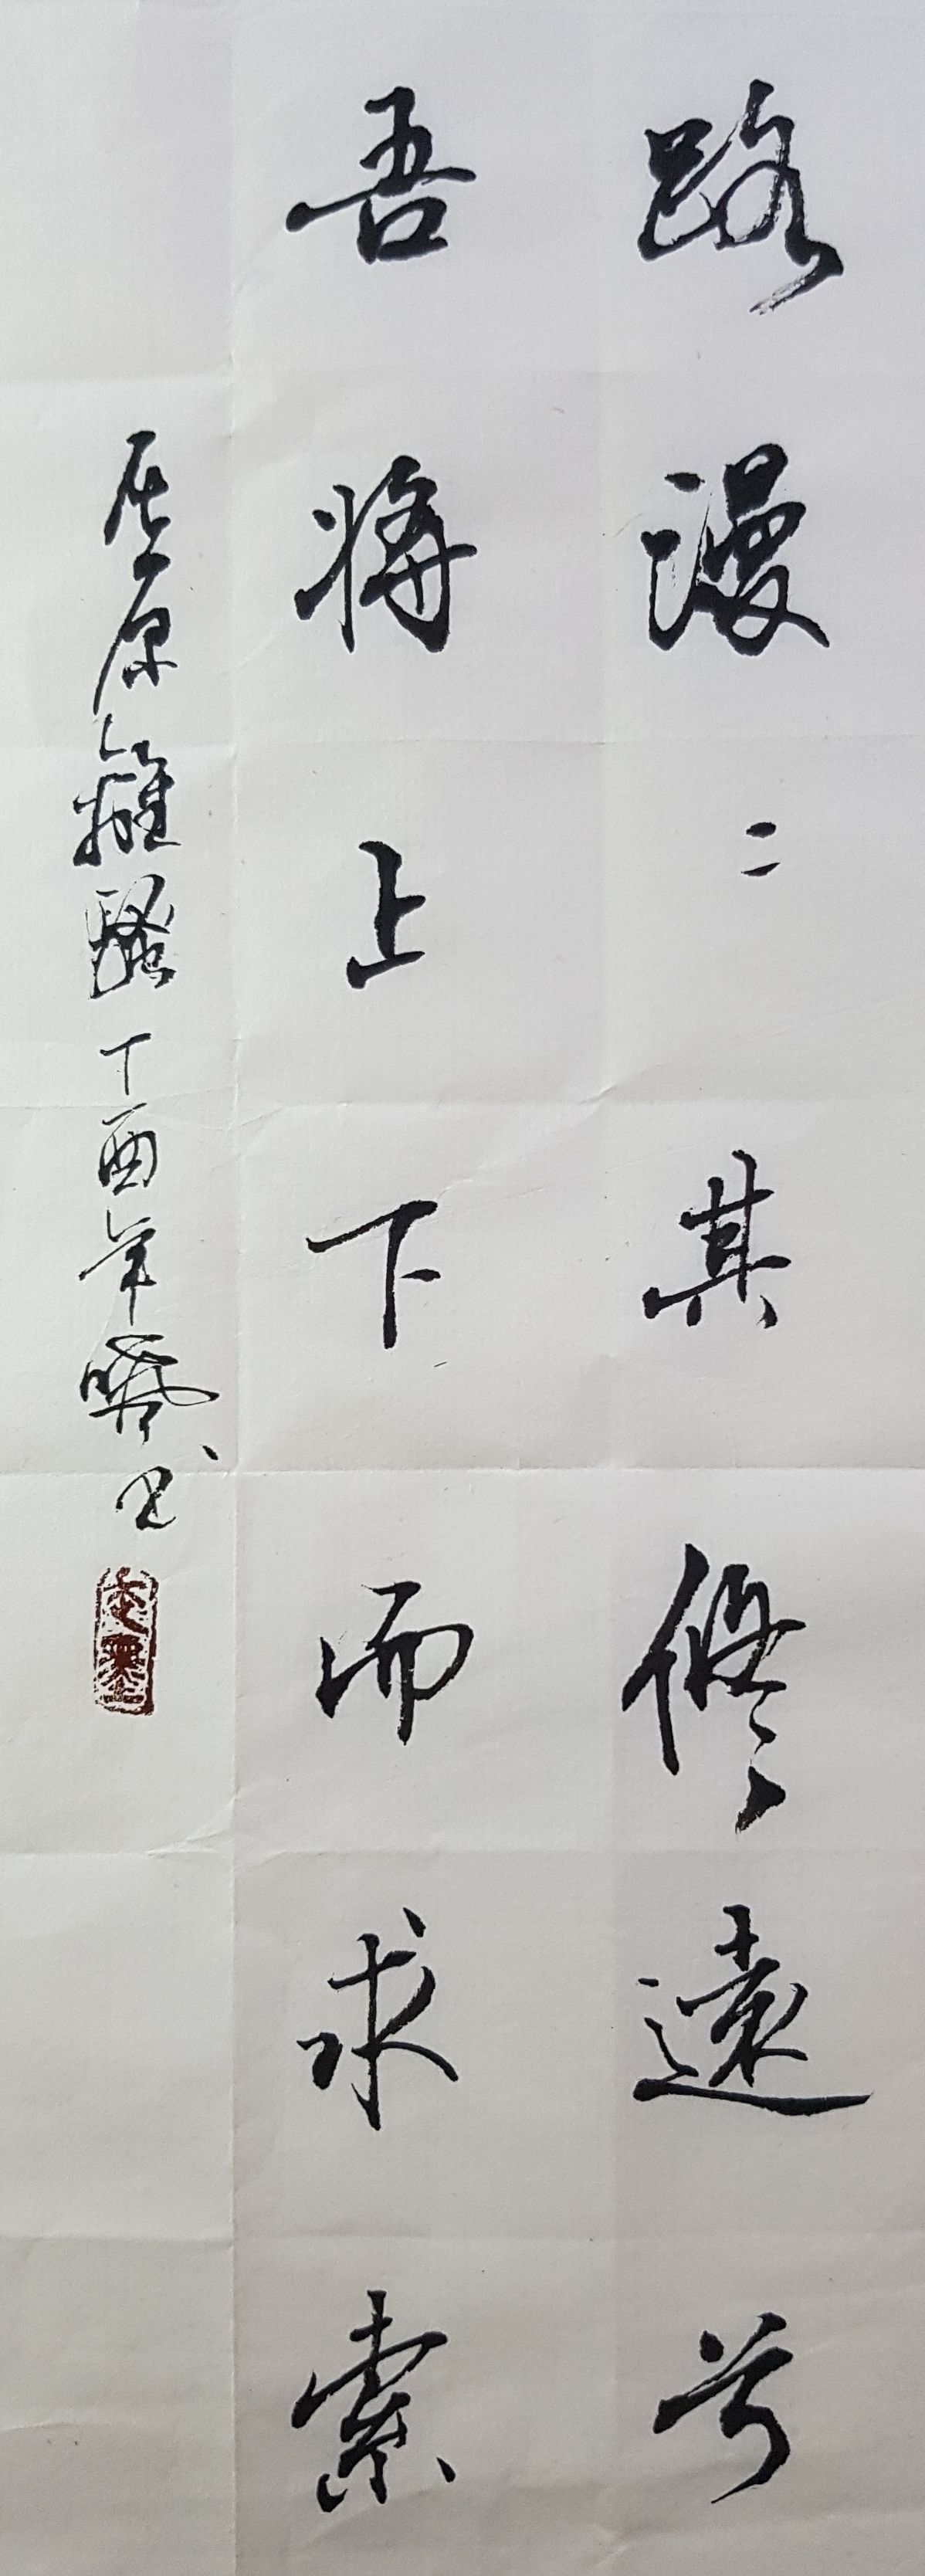 路漫〻其修遠兮
吾將上下而求索
屈原離騷丁酉年曉書